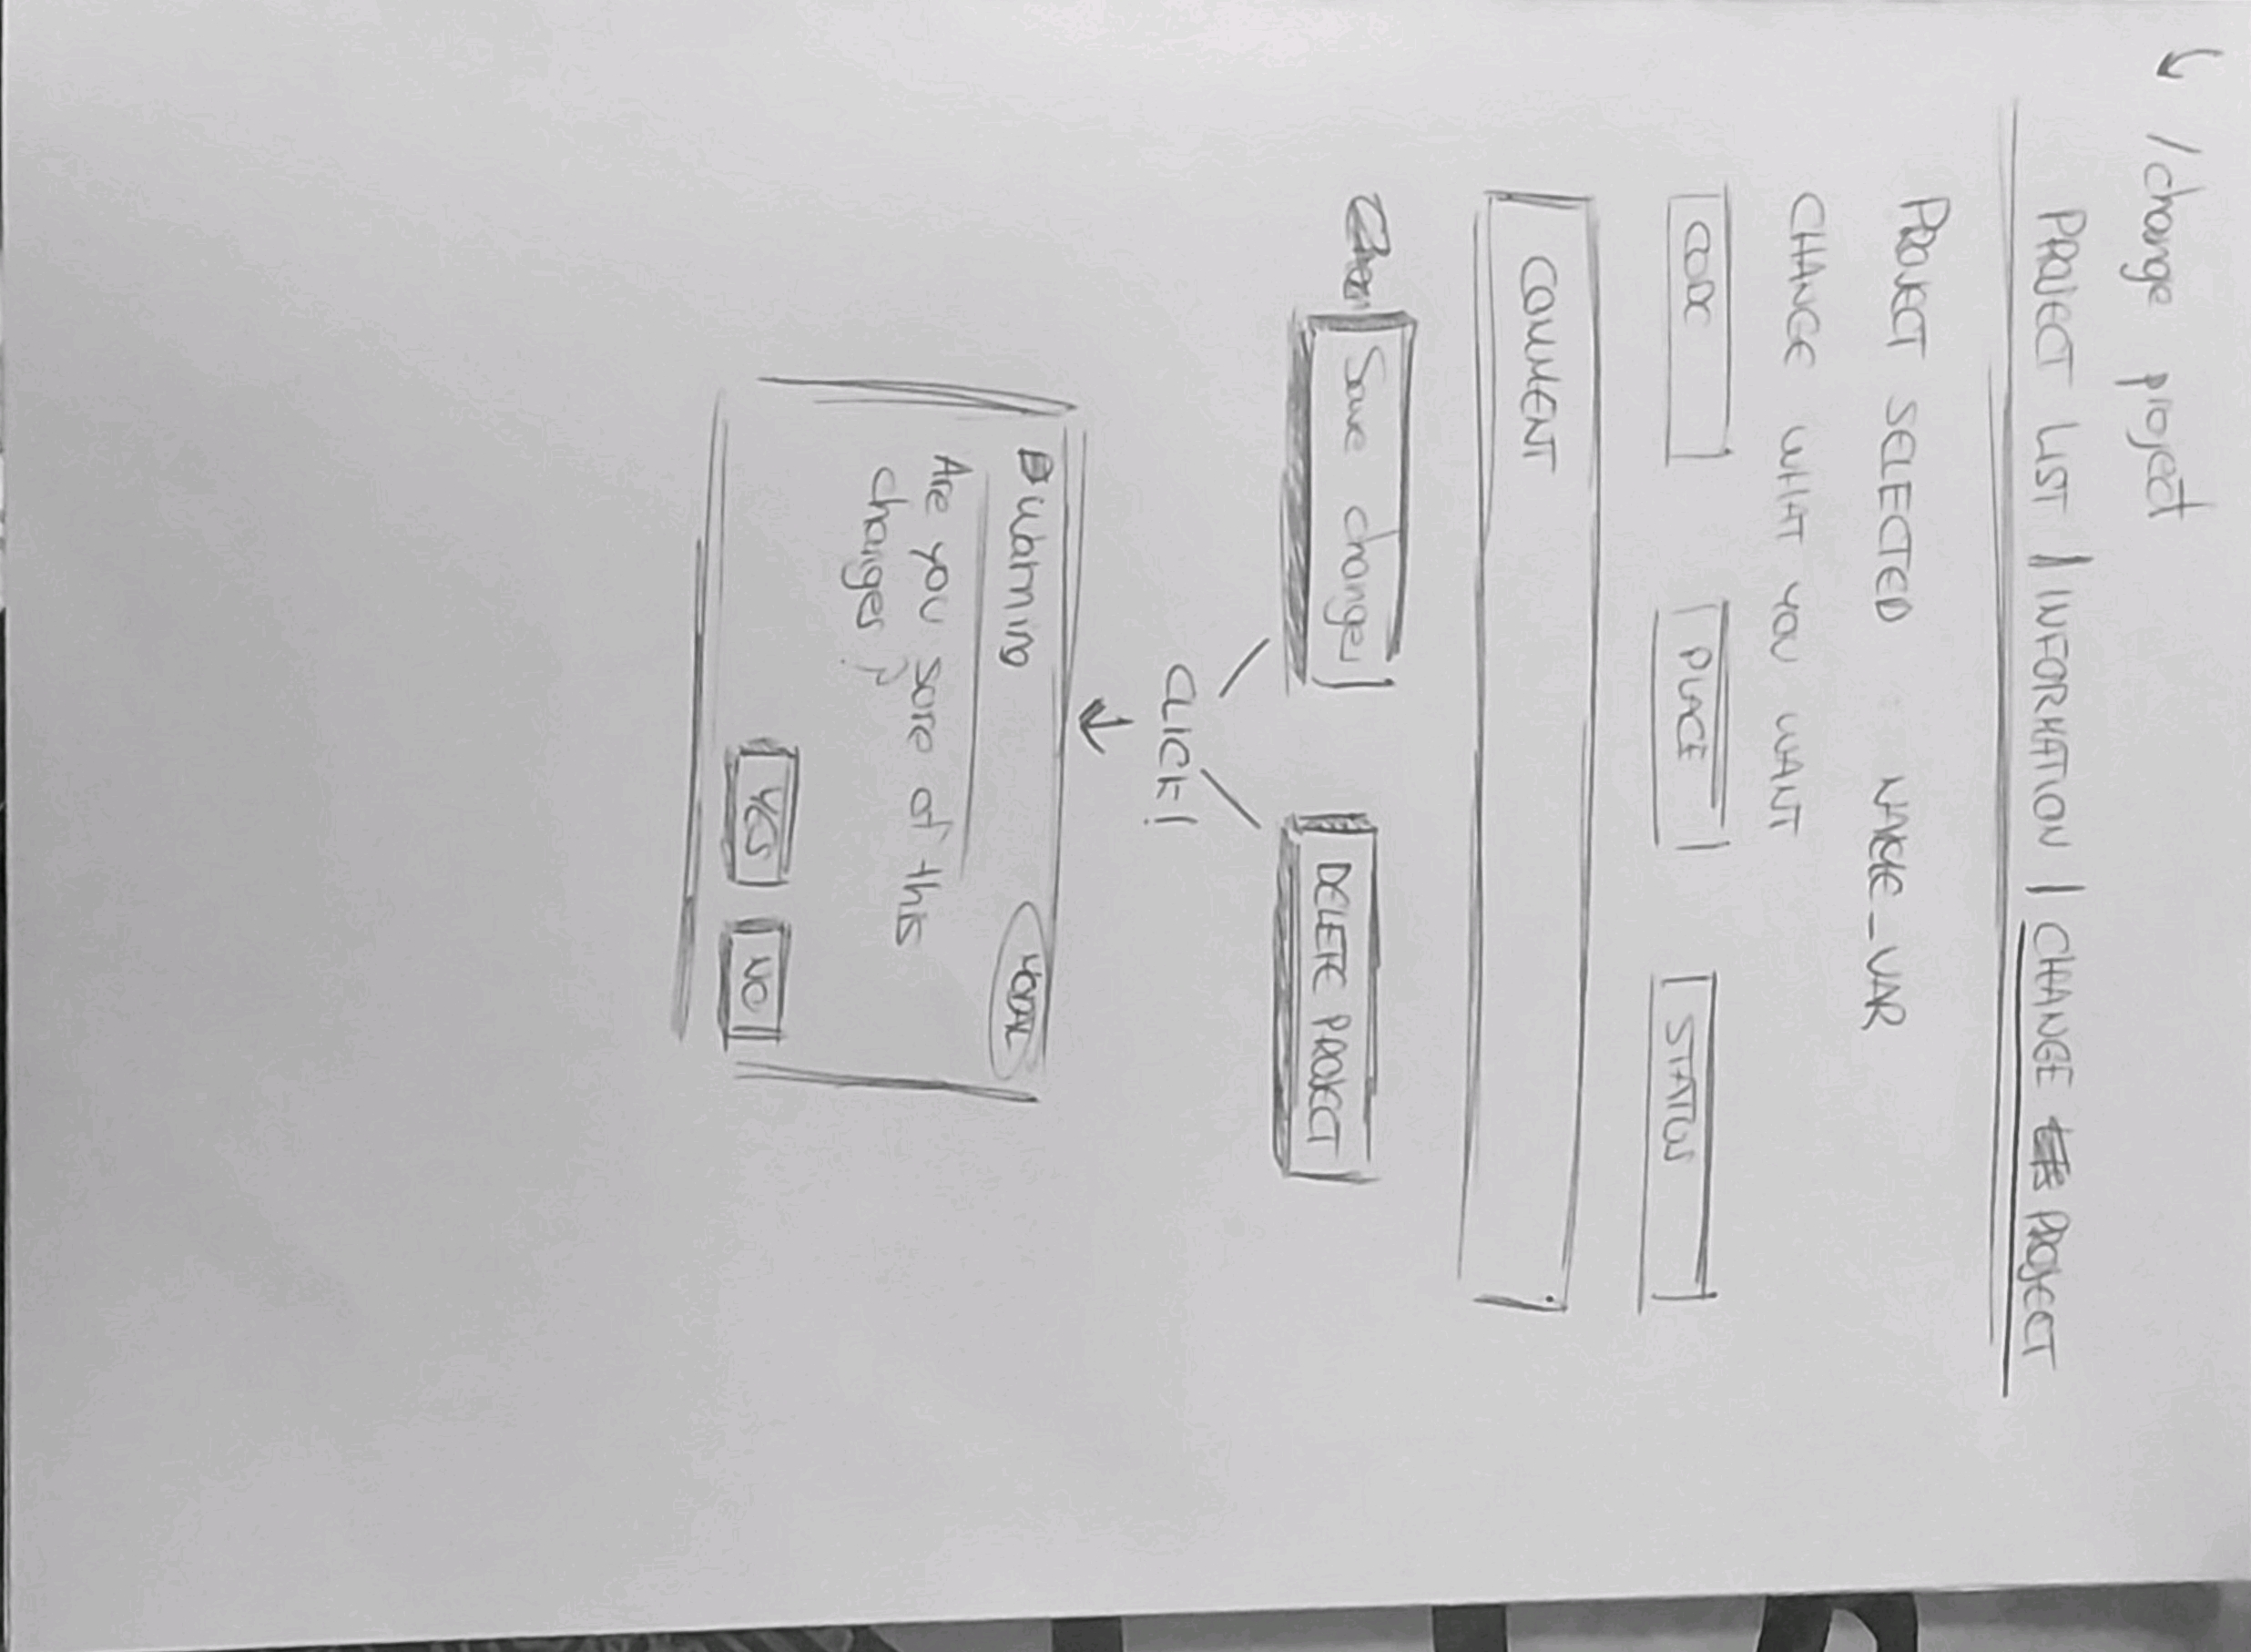 /change project
PROJECT LIST | INFORMATION | CHANGE PROJECT
PROJECT SELECTED NAME_VAR
CHANGE WHAT YOU WANT
CODE PLACE STATUS
COMMENT
Save changes DELETE PROJECT
CLICK!
Warning MODAL
Are you sure of this
changes?
YES NO